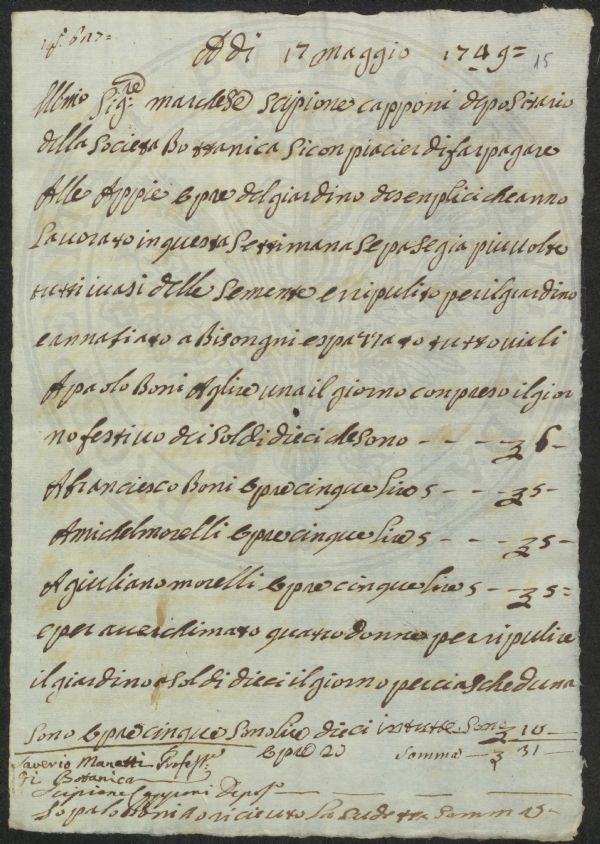 A di 17 maggio 1749= 15
Illmo Sigre marchese Scipione capponi depositario
della Societa Bottanica Si conpiacier di far pagare
Alle Appie Opre del giardino de senplici che anno
Lavorato in questa Settimana
tutti i vasi delle Semente e ripulito per il giardino
e annafiato a Bisongni e spazzato tutto viali
A paolo Boni A lire una il giorno conpreso il gior
no festivo di Soldi dieci che sono - - - - 6-
A franciesco Boni Opre cinque Lire 5 - - - 5-
A michel morelli Opre cinque Lire 5 - - - 5-
A giuliano morelli Opre cinque Lire 5 - - 5=
e per aver chimato quatro donne per ripulire
il giardino a Soldi dieci il giorno per ciascheduna
Sono Opre cinque Sono Lire dieci in tutte Sono 10
Opre 20 Somma - 31 -
Saverio Manetti Profess.
di Botanica
Scipione Capponi Depos.o
Io palo Boni O ricieuto La sudetta Somma